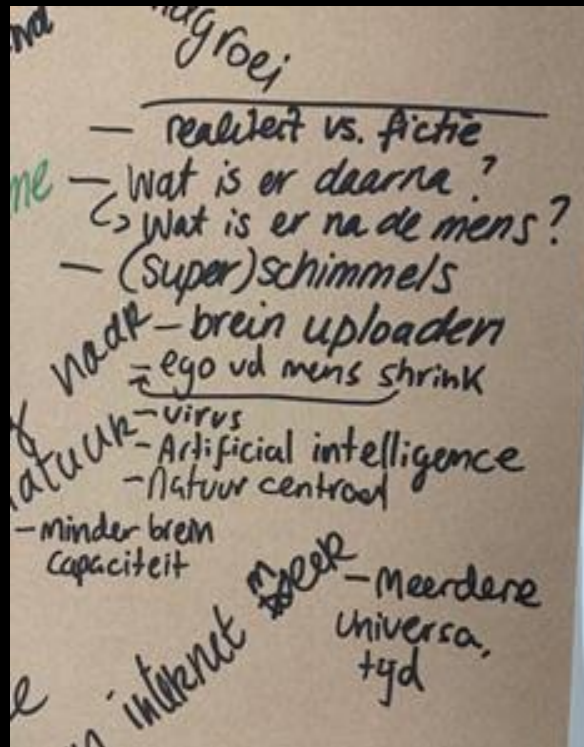 groei
- realiteit vs. fictie
- Wat is er daarna?
↳ Wat is er na de mens?
- (super)schimmels
naar
- brein uploaden
- ego vd mens shrink
- virus
- Artificial intelligence
- Natuur centraal
- minder brein
capaciteit
internet
- Meerdere
universa,
tyd